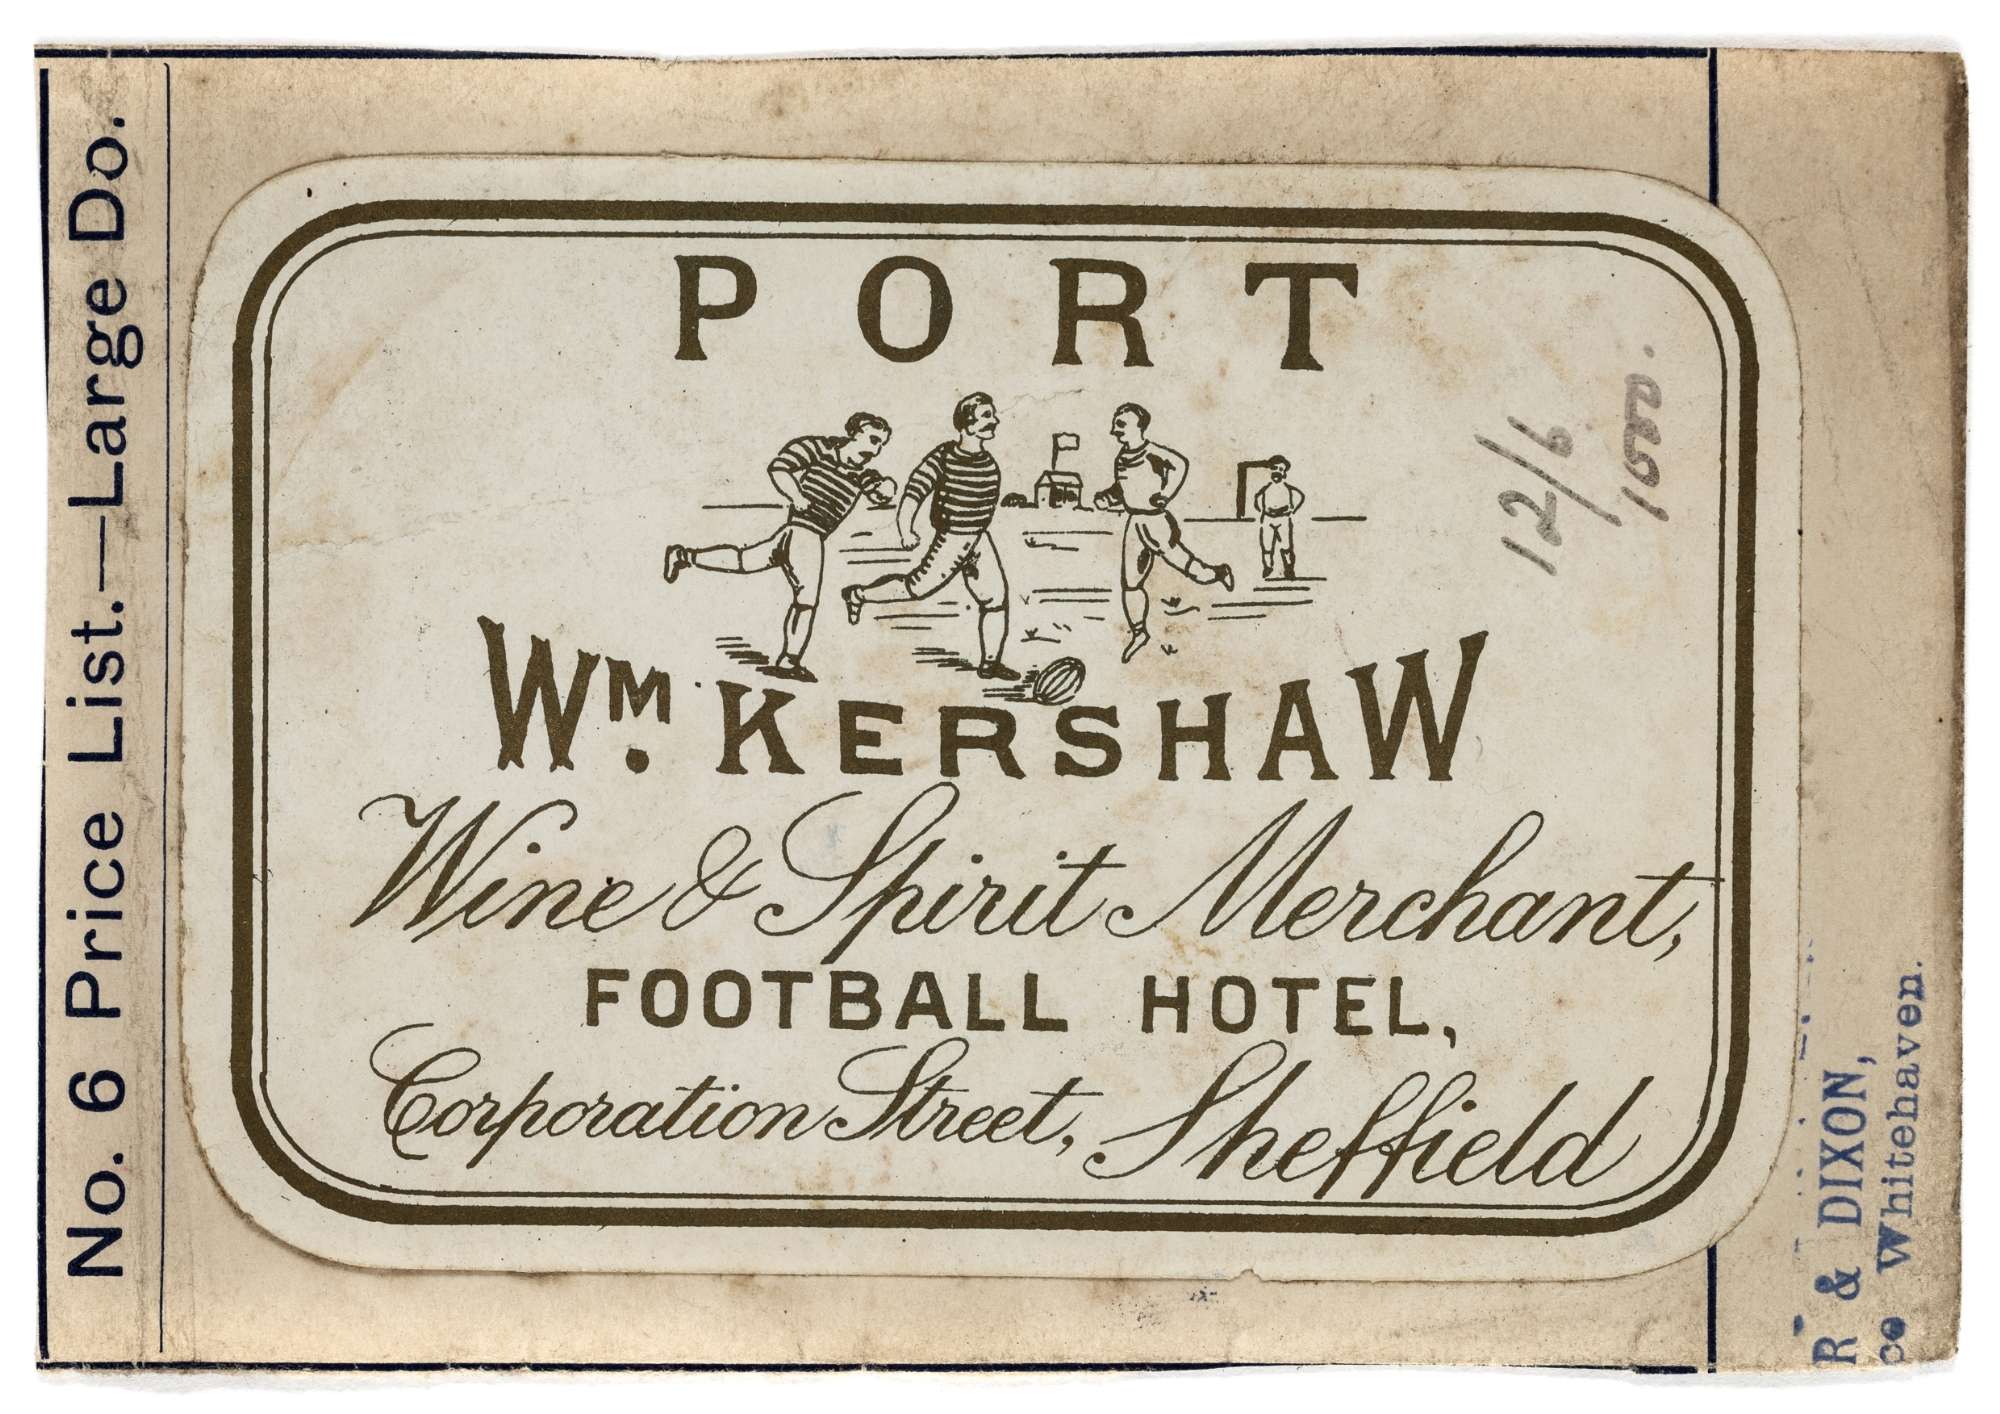 No. 6 Price List.—Large Do.
PORT
12/6
1500.
WM. KERSHAW
Wine & Spirit Merchant,
FOOTBALL HOTEL,
Corporation Street, Sheffield
R & DIXON,
ce Whitehaven.